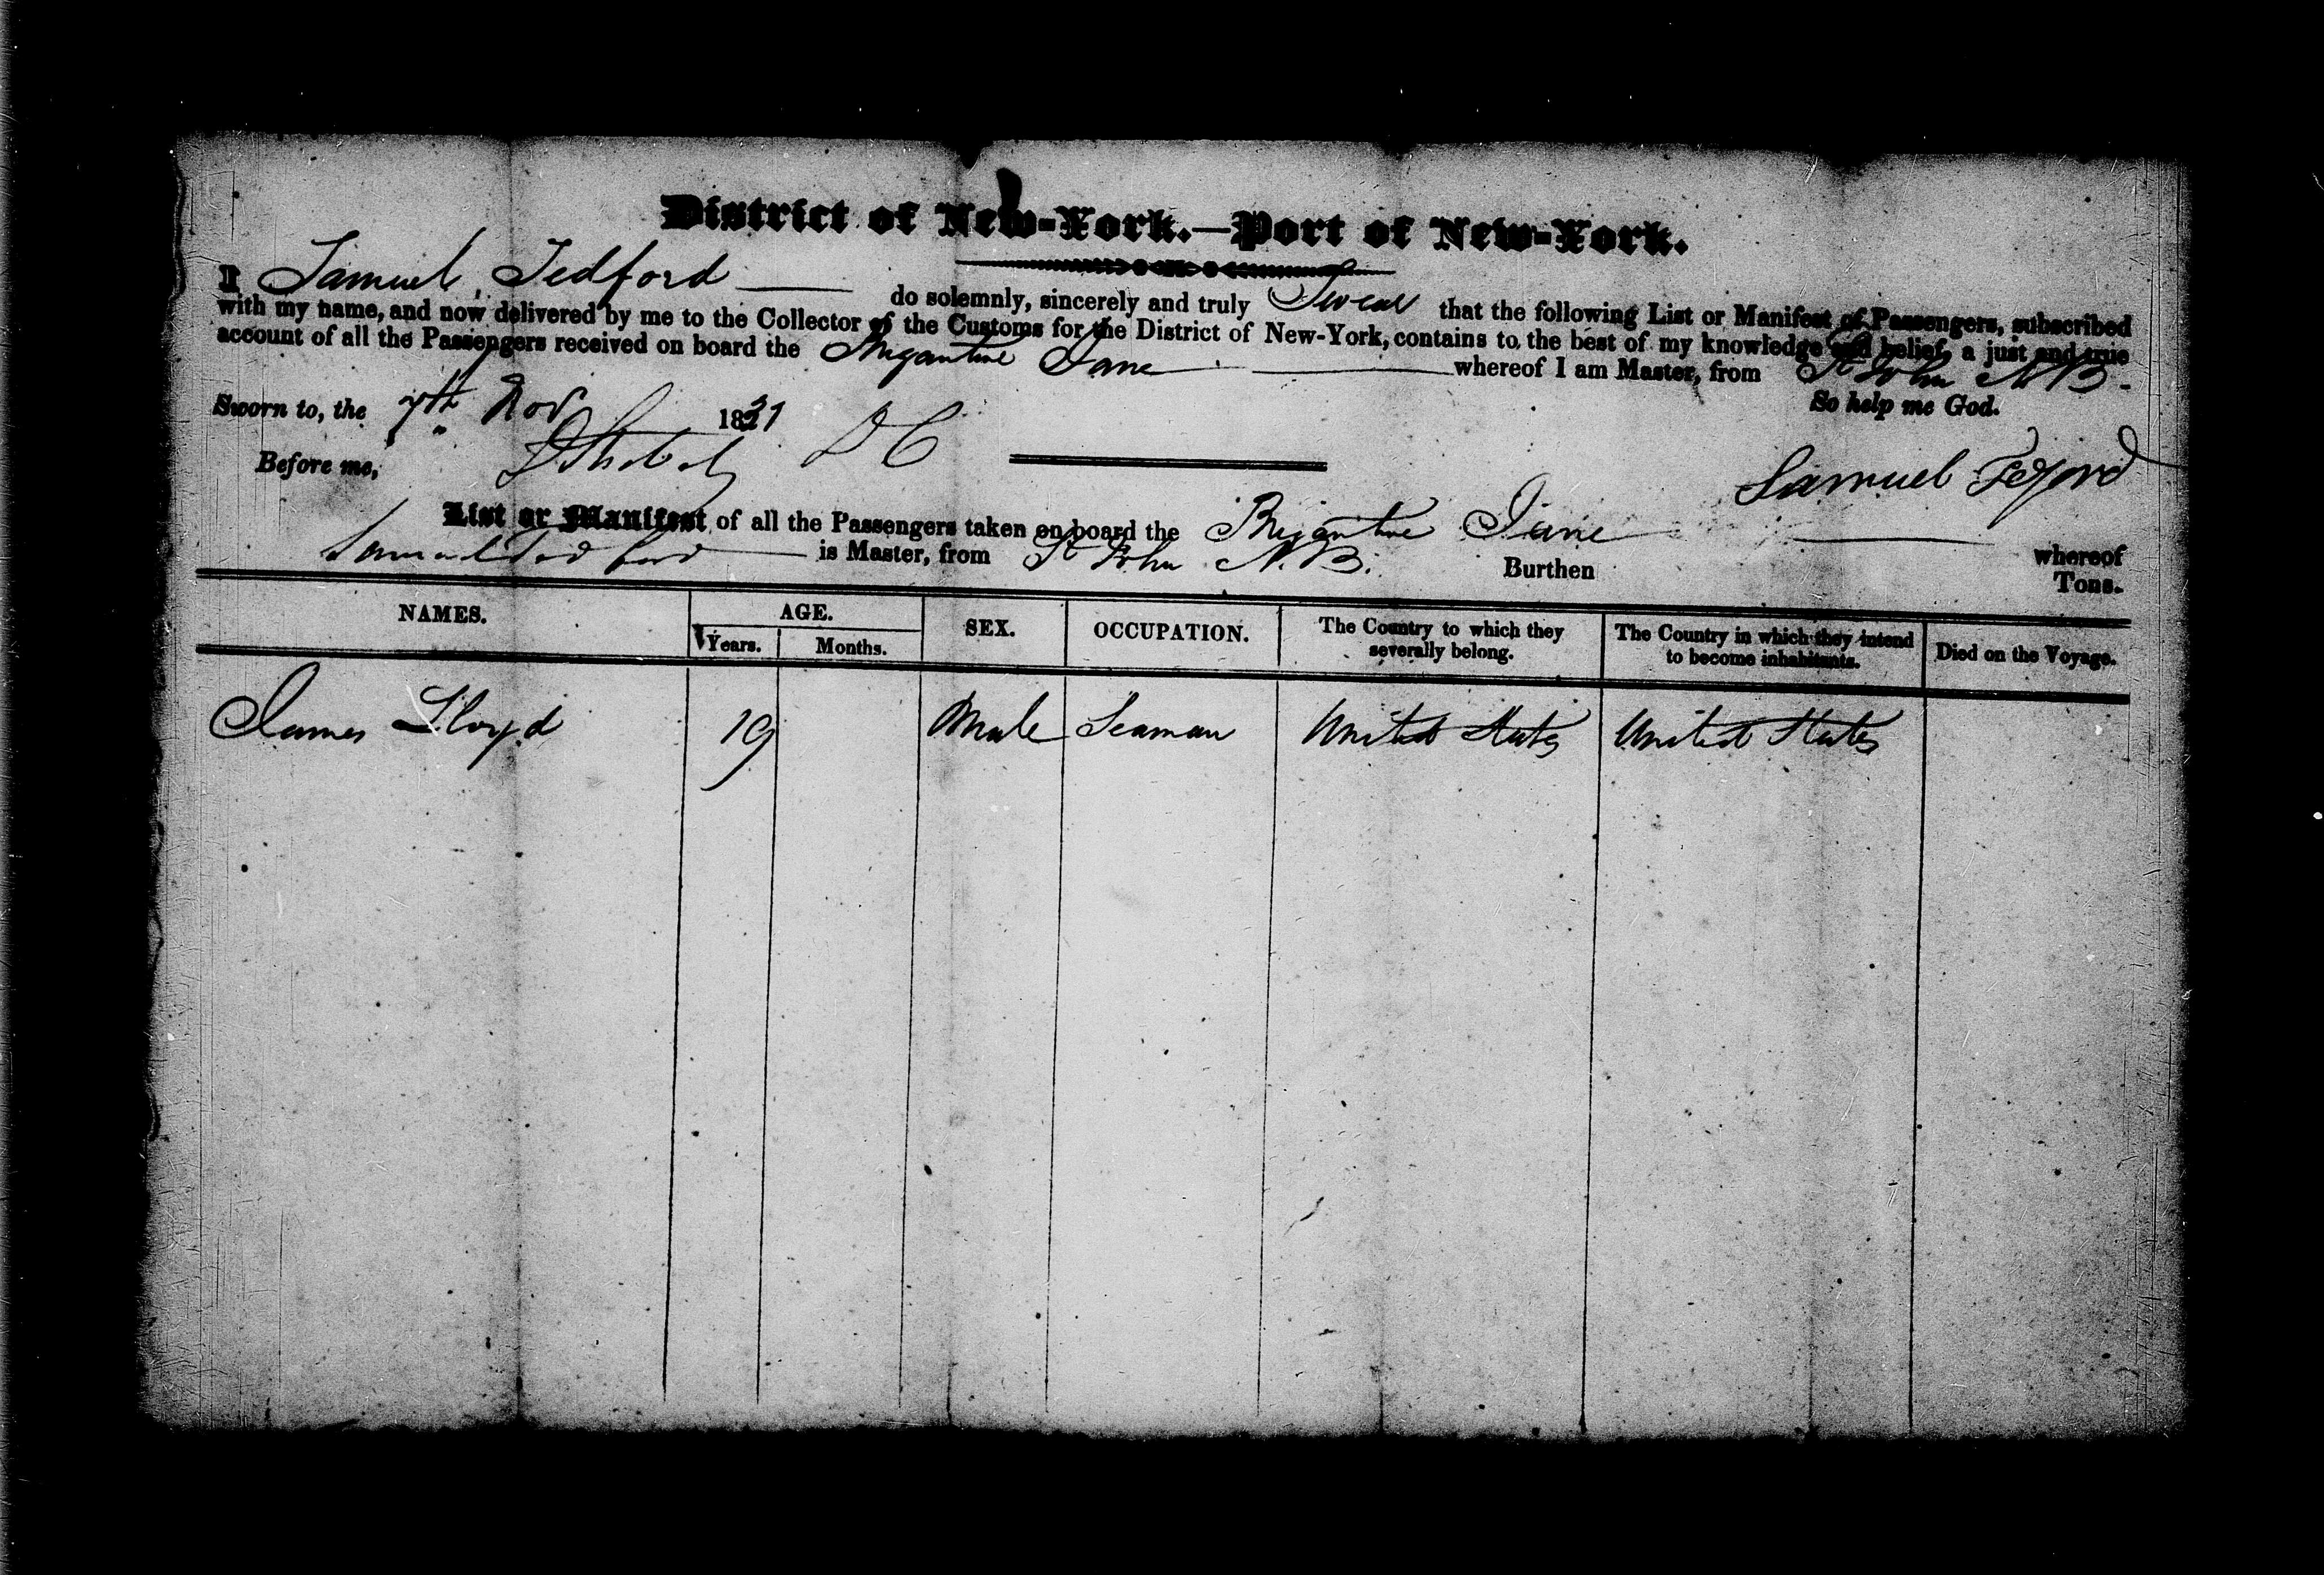 District of New-York.—Port of New-York.
I Samuel Tedford do solemnly, sincerely and truly Swear that the following List or Manifest of Passengers, subscribed
with my name, and now delivered by me to the Collector of the Customs for the District of New-York, contains to the best of my knowledge and belief, a just and true
account of all the Passengers received on board the Brigantine Jane whereof I am Master, from St John N.B.
So help me God.
Sworn to, the 7th Nov 1831
Before me, D C
Samuel Tedford
List or Manifest of all the Passengers taken on board the Brigantine Jane whereof
Samuel Tedford is Master, from St John N.B. Burthen Tons.
NAMES. AGE. SEX. OCCUPATION. The Country to which they severally belong. The Country in which they intend to become inhabitants. Died on the Voyage.
Years. Months.
James Lloyd 19 Male Seaman United States United States